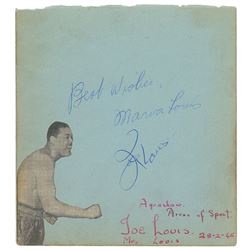 Best Wishes,
Marva Louis
Joe Louis
Arena of Sport.
JOE LOUIS. 28-2-45
Mrs Louis